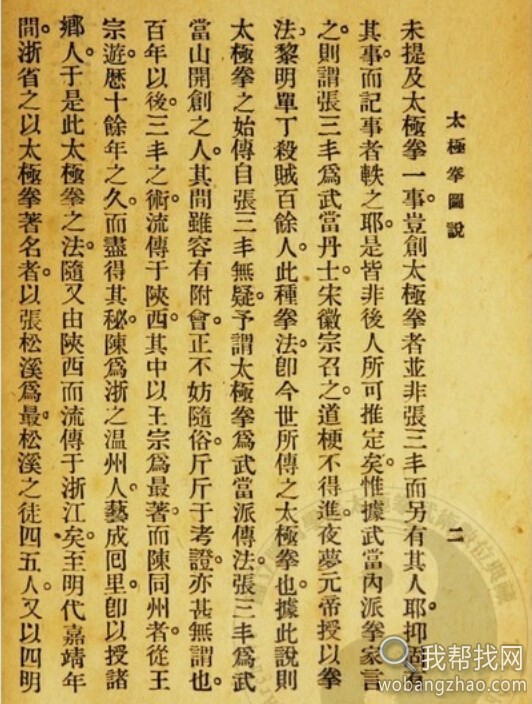 太極拳圖說
二
未提及太極拳一事。豈創太極拳者並非張三丰而另有其人耶。抑固有
其事。而記事者軼之耶。是皆非後人所可推定矣。惟據武當內派拳家言
之。則謂張三丰爲武當丹士。宋徽宗召之。道梗不得進。夜夢元帝授以拳
法。黎明單丁殺賊百餘人。此種拳法。卽今世所傳之太極拳也。據此說則
太極拳之始傳自張三丰無疑。予謂太極拳爲武當派傳法。張三丰爲武
當山開創之人。其間雖容有附會。正不妨隨俗。斤斤于考證。亦甚無謂也。
百年以後。三丰之術。流傳于陝西。其中以王宗爲最著。而陳同州者。從王
宗遊歷十餘年之久。而盡得其秘。陳爲浙之温州人。藝成囘里。卽以授諸
鄉人。于是此太極拳之法。隨又由陝西而流傳于浙江矣。至明代嘉靖年
間。浙省之以太極拳著名者。以張松溪爲最。松溪之徒四五人。又以四明
我帮找网
wobangzhao.com